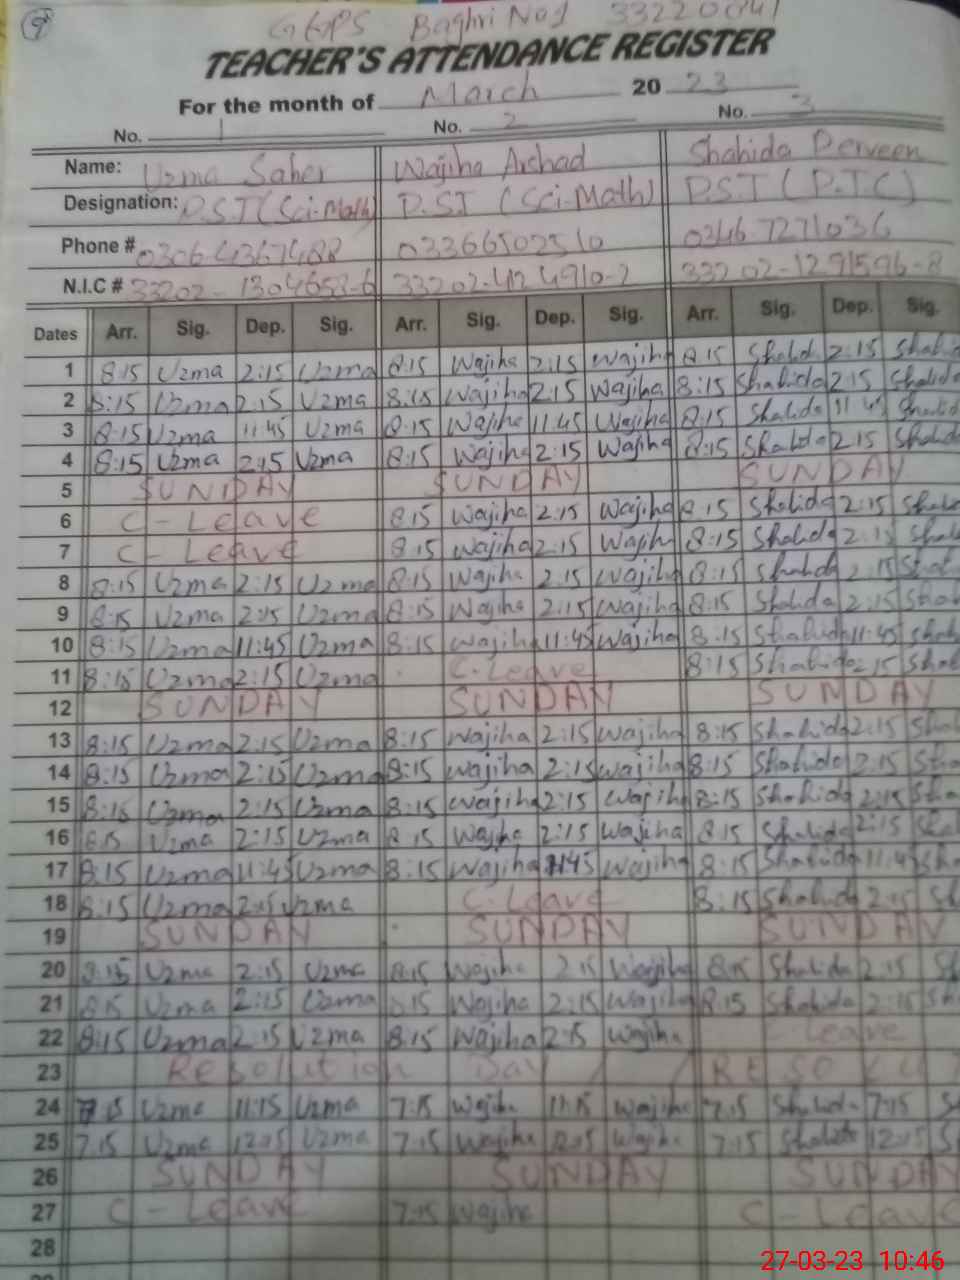 9
GGPS Baghri No 1 33220041
TEACHER'S ATTENDANCE REGISTER
For the month of March 20 23
No. 1 No. 2 No. 3
Name: Uzma Saher Wajiha Arshad Shahida Perveen
Designation: P.S.T (Sci-Math) P.S.T (Sci-Math) P.S.T (P.T.C)
Phone # 0306-4367488 03366502510 0346-7271036
N.I.C # 33202-1304658-6 33202-4124910-2 33202-1291596-8
Dates Arr. Sig. Dep. Sig. Arr. Sig. Dep. Sig. Arr. Sig. Dep. Sig.
1 8:15 Uzma 2:15 Uzma 8:15 Wajiha 2:15 Wajiha 8:15 Shahid 2:15 Shahid
2 8:15 Uzma 2:15 Uzma 8:15 Wajiha 2:15 Wajiha 8:15 Shahida 2:15 Shahida
3 8:15 Uzma 11:45 Uzma 8:15 Wajiha 11:45 Wajiha 8:15 Shahida 11:45 Shahid
4 8:15 Uzma 2:15 Uzma 8:15 Wajiha 2:15 Wajiha 8:15 Shahida 2:15 Shahid
5 SUNDAY SUNDAY SUNDAY
6 C-Leave 8:15 Wajiha 2:15 Wajiha 8:15 Shahida 2:15 Shah
7 C-Leave 8:15 Wajiha 2:15 Wajih 8:15 Shahida 2:15 Shah
8 8:15 Uzma 2:15 Uzma 8:15 Wajiha 2:15 Wajiha 8:15 Shahda 2:15 Shah
9 8:15 Uzma 2:15 Uzma 8:15 Wajiha 2:15 Wajiha 8:15 Shahida 2:15 Shah
10 8:15 Uzma 11:45 Uzma 8:15 Wajiha 11:45 Wajiha 8:15 Shahida 11:45 Shah
11 8:15 Uzma 2:15 Uzma C-Leave 8:15 Shahida 2:15 Shah
12 SUNDAY SUNDAY SUNDAY
13 8:15 Uzma 2:15 Uzma 8:15 Wajiha 2:15 Wajiha 8:15 Shahida 2:15 Sha
14 8:15 Uzma 2:15 Uzma 8:15 Wajiha 2:15 Wajiha 8:15 Shahida 2:15 Sha
15 8:15 Uzma 2:15 Uzma 8:15 Wajiha 2:15 Wajiha 8:15 Shahida 2:15 Sha
16 8:15 Uzma 2:15 Uzma 8:15 Wajiha 2:15 Wajiha 8:15 Shahida 2:15 Sha
17 8:15 Uzma 11:45 Uzma 8:15 Wajiha 11:45 Wajiha 8:15 Shahida 11:45 Sha
18 8:15 Uzma 2:15 Uzma C-Leave 8:15 Shahida 2:15 Sh
19 SUNDAY SUNDAY SUNDAY
20 8:15 Uzma 2:15 Uzma 8:15 Wajiha 2:15 Wajiha 8:15 Shahida 2:15 Sh
21 8:15 Uzma 2:15 Uzma 8:15 Wajiha 2:15 Wajiha 8:15 Shahida 2:15 Sh
22 8:15 Uzma 2:15 Uzma 8:15 Wajiha 2:15 Wajiha Leave
23 Resolution Day RESOLU
24 7:15 Uzma 11:15 Uzma 7:15 Wajiha 11:15 Wajiha 7:15 Shahida S
25 7:15 Uzma 12:15 Uzma 7:15 Wajiha 12:15 Wajiha 7:15 Shahida 12:15 S
26 SUNDAY SUNDAY SUNDAY
27 C-Leave 7:15 Wajiha C-Leave
28
27-03-23 10:46